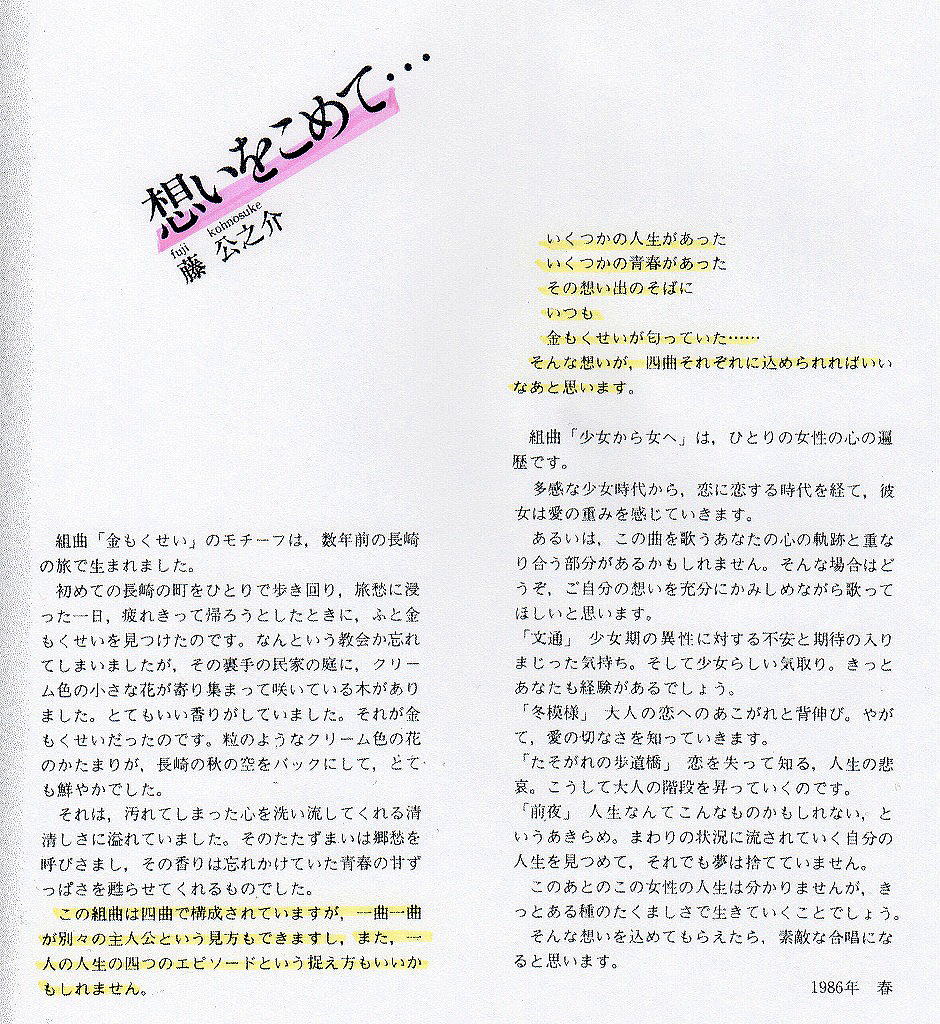 想いをこめて…
fuji kohnosuke
藤 公之介
組曲「金もくせい」のモチーフは，数年前の長崎
の旅で生まれました。
初めての長崎の町をひとりで歩き回り，旅愁に浸
った一日，疲れきって帰ろうとしたときに，ふと金
もくせいを見つけたのです。なんという教会か忘れ
てしまいましたが，その裏手の民家の庭に，クリー
ム色の小さな花が寄り集まって咲いている木があり
ました。とてもいい香りがしていました。それが金
もくせいだったのです。粒のようなクリーム色の花
のかたまりが，長崎の秋の空をバックにして，とて
も鮮やかでした。
それは，汚れてしまった心を洗い流してくれる清
清しさに溢れていました。そのたたずまいは郷愁を
呼びさまし，その香りは忘れかけていた青春の甘ず
っぱさを甦らせてくれるものでした。
この組曲は四曲で構成されていますが，一曲一曲
が別々の主人公という見方もできますし，また，一
人の人生の四つのエピソードという捉え方もいいか
もしれません。
いくつかの人生があった
いくつかの青春があった
その想い出のそばに
いつも
金もくせいが匂っていた……
そんな想いが，四曲それぞれに込められればいい
なあと思います。
組曲「少女から女へ」は，ひとりの女性の心の遍
歴です。
多感な少女時代から，恋に恋する時代を経て，彼
女は愛の重みを感じていきます。
あるいは，この曲を歌うあなたの心の軌跡と重な
り合う部分があるかもしれません。そんな場合はど
うぞ，ご自分の想いを充分にかみしめながら歌って
ほしいと思います。
「文通」 少女期の異性に対する不安と期待の入り
まじった気持ち。そして少女らしい気取り。きっと
あなたも経験があるでしょう。
「冬模様」 大人の恋へのあこがれと背伸び。やが
て，愛の切なさを知っていきます。
「たそがれの歩道橋」 恋を失って知る，人生の悲
哀。こうして大人の階段を昇っていくのです。
「前夜」 人生なんてこんなものかもしれない，と
いうあきらめ。まわりの状況に流されていく自分の
人生を見つめて，それでも夢は捨てていません。
このあとのこの女性の人生は分かりませんが，き
っとある種のたくましさで生きていくことでしょう。
そんな想いを込めてもらえたら，素敵な合唱にな
ると思います。
1986年 春